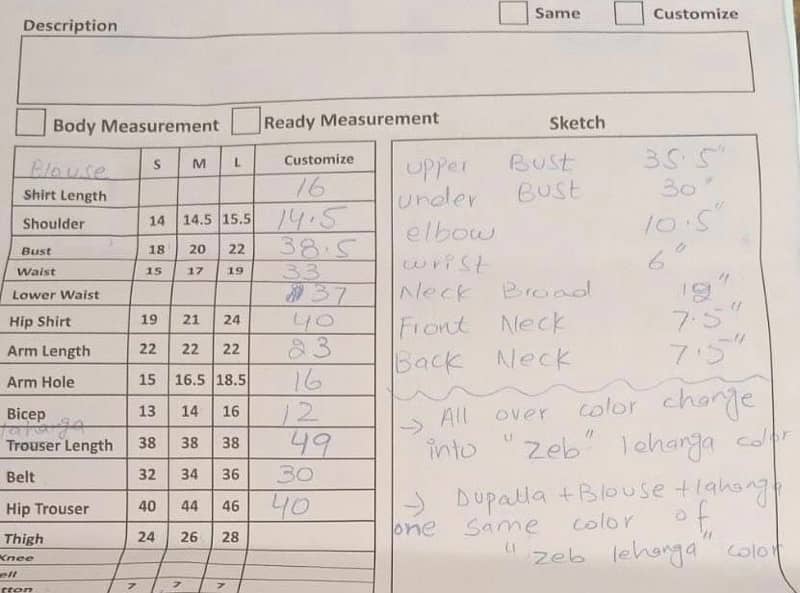 Same Customize
Description
Body Measurement Ready Measurement Sketch
Blouse S M L Customize
Shirt Length 16
Shoulder 14 14.5 15.5 14.5
Bust 18 20 22 38.5
Waist 15 17 19 33
Lower Waist 37
Hip Shirt 19 21 24 40
Arm Length 22 22 22 23
Arm Hole 15 16.5 18.5 16
Bicep 13 14 16 12
Trouser Length 38 38 38 49
Belt 32 34 36 30
Hip Trouser 40 44 46 40
Thigh 24 26 28
Knee
7 7 7
upper Bust 35.5"
under Bust 30"
elbow 10.5"
wrist 6"
Neck Broad
Front Neck 7.5"
Back Neck 7.5"
→ All over color change
into "Zeb" lehanga color
→ Dupatta + Blouse + lahanga
one same color of
"zeb lehanga" color